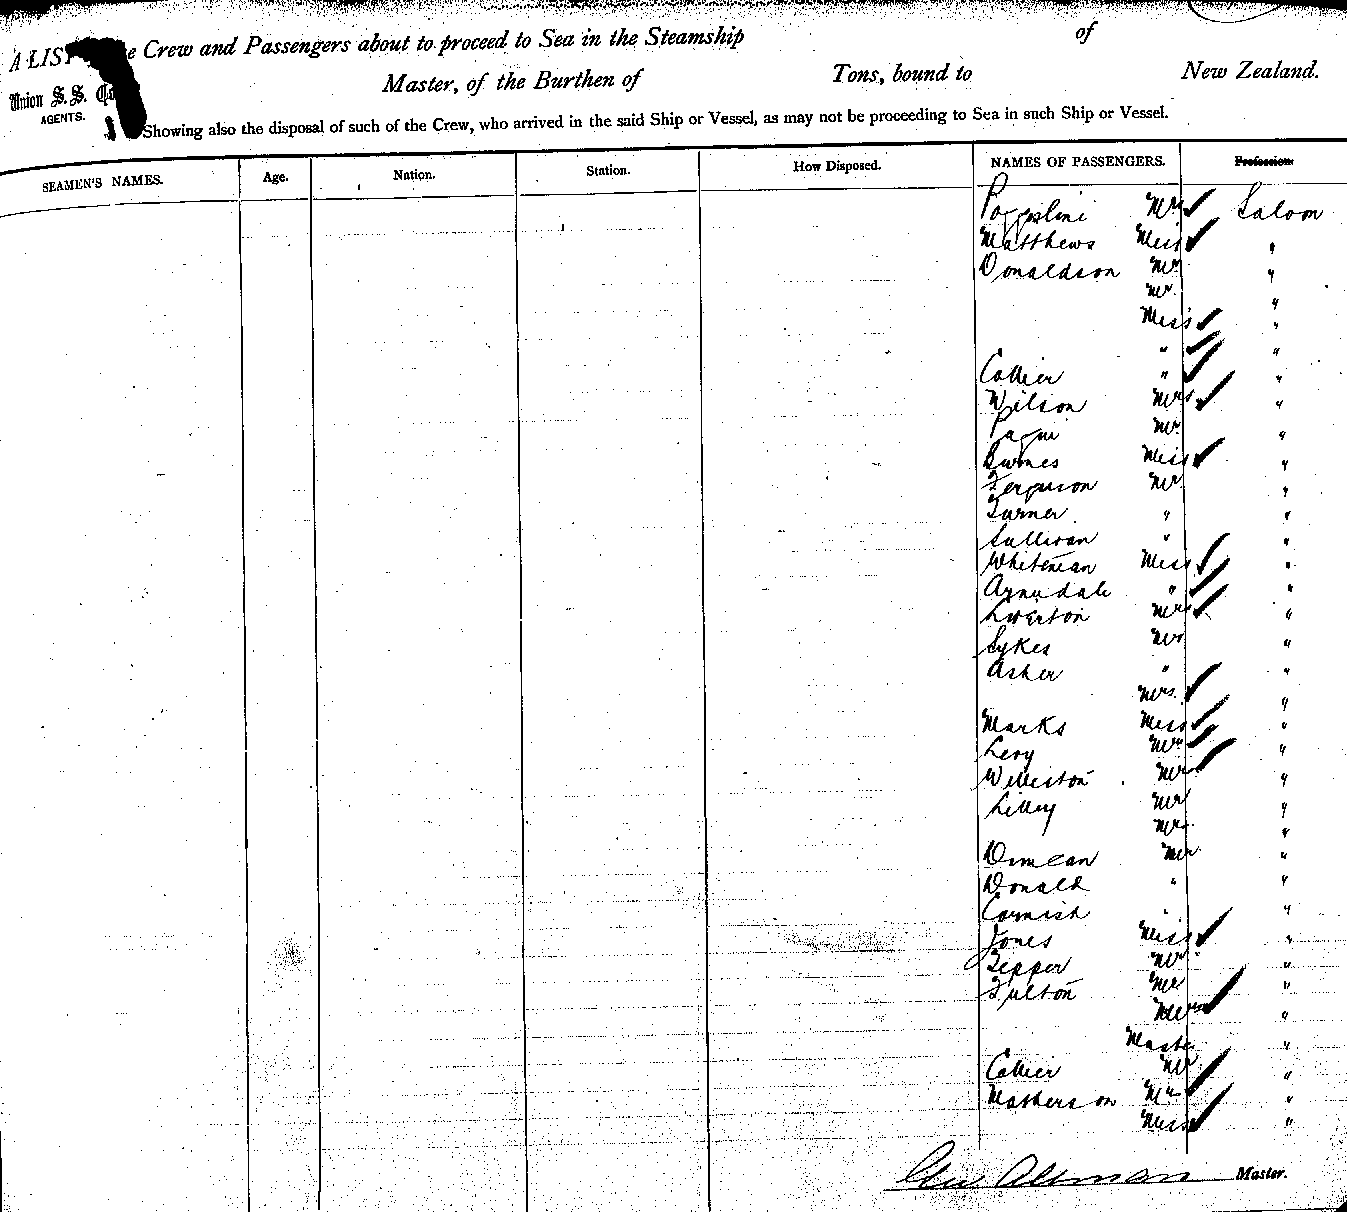 A LIST Crew and Passengers about to proceed to Sea in the Steamship of
Union S.S. Co
AGENTS.
Master, of the Burthen of Tons, bound to New Zealand.
Showing also the disposal of such of the Crew, who arrived in the said Ship or Vessel, as may not be proceeding to Sea in such Ship or Vessel.
SEAMEN'S NAMES. Age. Nation. Station. How Disposed. NAMES OF PASSENGERS. Profession
Mrs ✓ Saloon
Matthews Miss ✓ "
Donaldson Mr "
Mr. "
Miss ✓ "
" ✓ "
Collier " ✓ "
Wilson Mrs ✓ "
Mr "
Miss ✓ "
Ferguson Mr "
Turner " "
Sullivan " "
Whiteman Miss ✓ "
" ✓ "
Mrs ✓ "
Sykes Mr "
Asher " "
Mrs. ✓ "
Marks Miss ✓ "
Levy ✓ "
Williston ✓ "
Lilley Mr "
Mrs "
Duncan Mr "
Donald " "
Cornish " "
Jones Miss ✓ "
Tepper Mr "
Fulton Mr "
Mrs ✓ "
Master "
Collier Mr "
Matherson ✓ "
Miss ✓ "
Master.